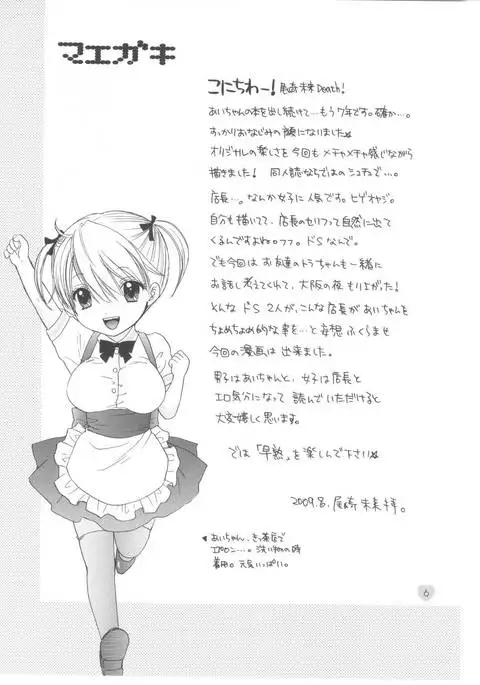 マエガキ
こにちわー! 尾崎未来Death!
あいちゃんの本を出し続けて…もう7年です。確か…。
すっかりおなじみの顔になりました☆
オリジナルの楽しさを今回もメチャメチャ感じながら
描きました! 同人誌ならではのシチュで…。
店長…。なんか女子に人気です。ヒゲオヤジ。
自分も描いてて、店長のセリフって自然に出て
くるんですよね。フフ。ドSなんで。
でも今回は お友達のトラちゃんも一緒に
お話し考えてくれて、大阪の夜 もりよがた!
そんな ドS 2人が、こんな店長が あいちゃんを
ちょめちょめ的な事を…と妄想ふくらませ
今回の漫画は 出来ました。
男子はあいちゃんと、女子は店長と
エロ気分になって 読んでいただけると
大変嬉しく思います。
では「早熟」を楽しんで下さい☆
2009.8. 尾崎未来拝。
あいちゃん、きっ茶店で
エプロン…。洗い物の時
着用。元気いっぱい。
6